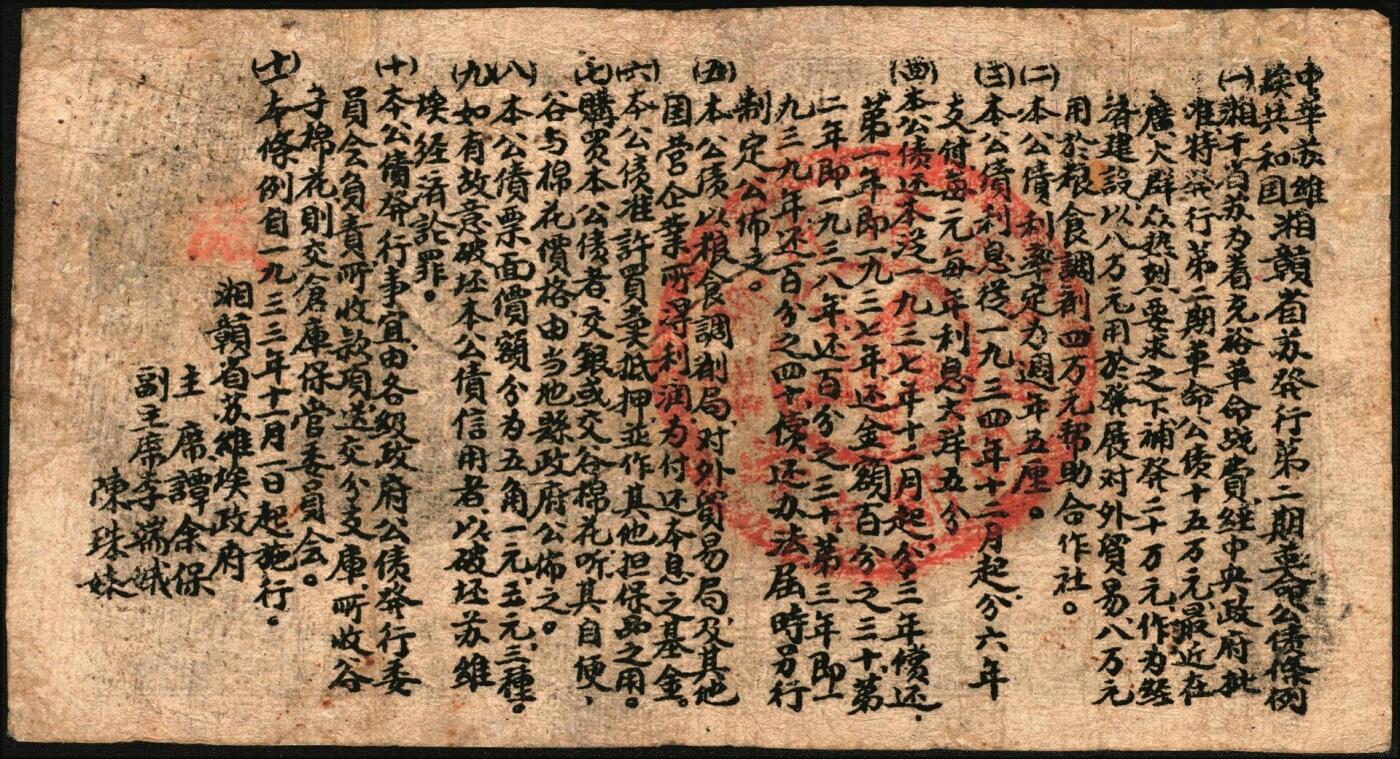 中华苏维
埃共和国湘赣省苏發行第二期革命公债條例
(一)湘干省苏为着充裕革命战费,经中央政府批
准特發行第二期革命公债十五万元,最近在
广大群众热烈要求之下補發二十万元,作为经
济建設以八万元用於發展对外貿易,八万元
用於粮食調剂四万元帮助合作社。
(二)本公债利率定为週年五厘。
(三)本公债利息從一九三四年十二月起分六年
支付每元每年利息大洋五分
(四)本公债还本從一九三七年十二月起,分三年償还,
第一年即一九三七年还全額百分之三十,第
二年即一九三八年还百分之三十,第三年即一
九三九年还百分之四十,償还办法屆時另行
制定公佈之。
(五)本公债以粮食調剂局,对外貿易局,及其他
国营企業所得利润为付还本息之基金。
(六)本公债准許買卖抵押,並作其他担保品之用。
(七)購買本公债者,交銀或交谷棉花听其自便,
谷与棉花價格,由当地縣政府公佈之。
(八)本公债票面價額分为五角一元,五元,三種。
(九)如有故意破坯本公债信用者,以破坯苏維
埃经济訟罪。
(十)本公债發行事宜,由各级政府公债發行委
員会負責所收款項,送交分支庫所收谷
子棉花則交倉庫保官委員会。
(十一)本條例自一九三三年十一月一日起施行。
湘贛省苏維埃政府
主 席譚余保
副主席李端娥
陳珠妹